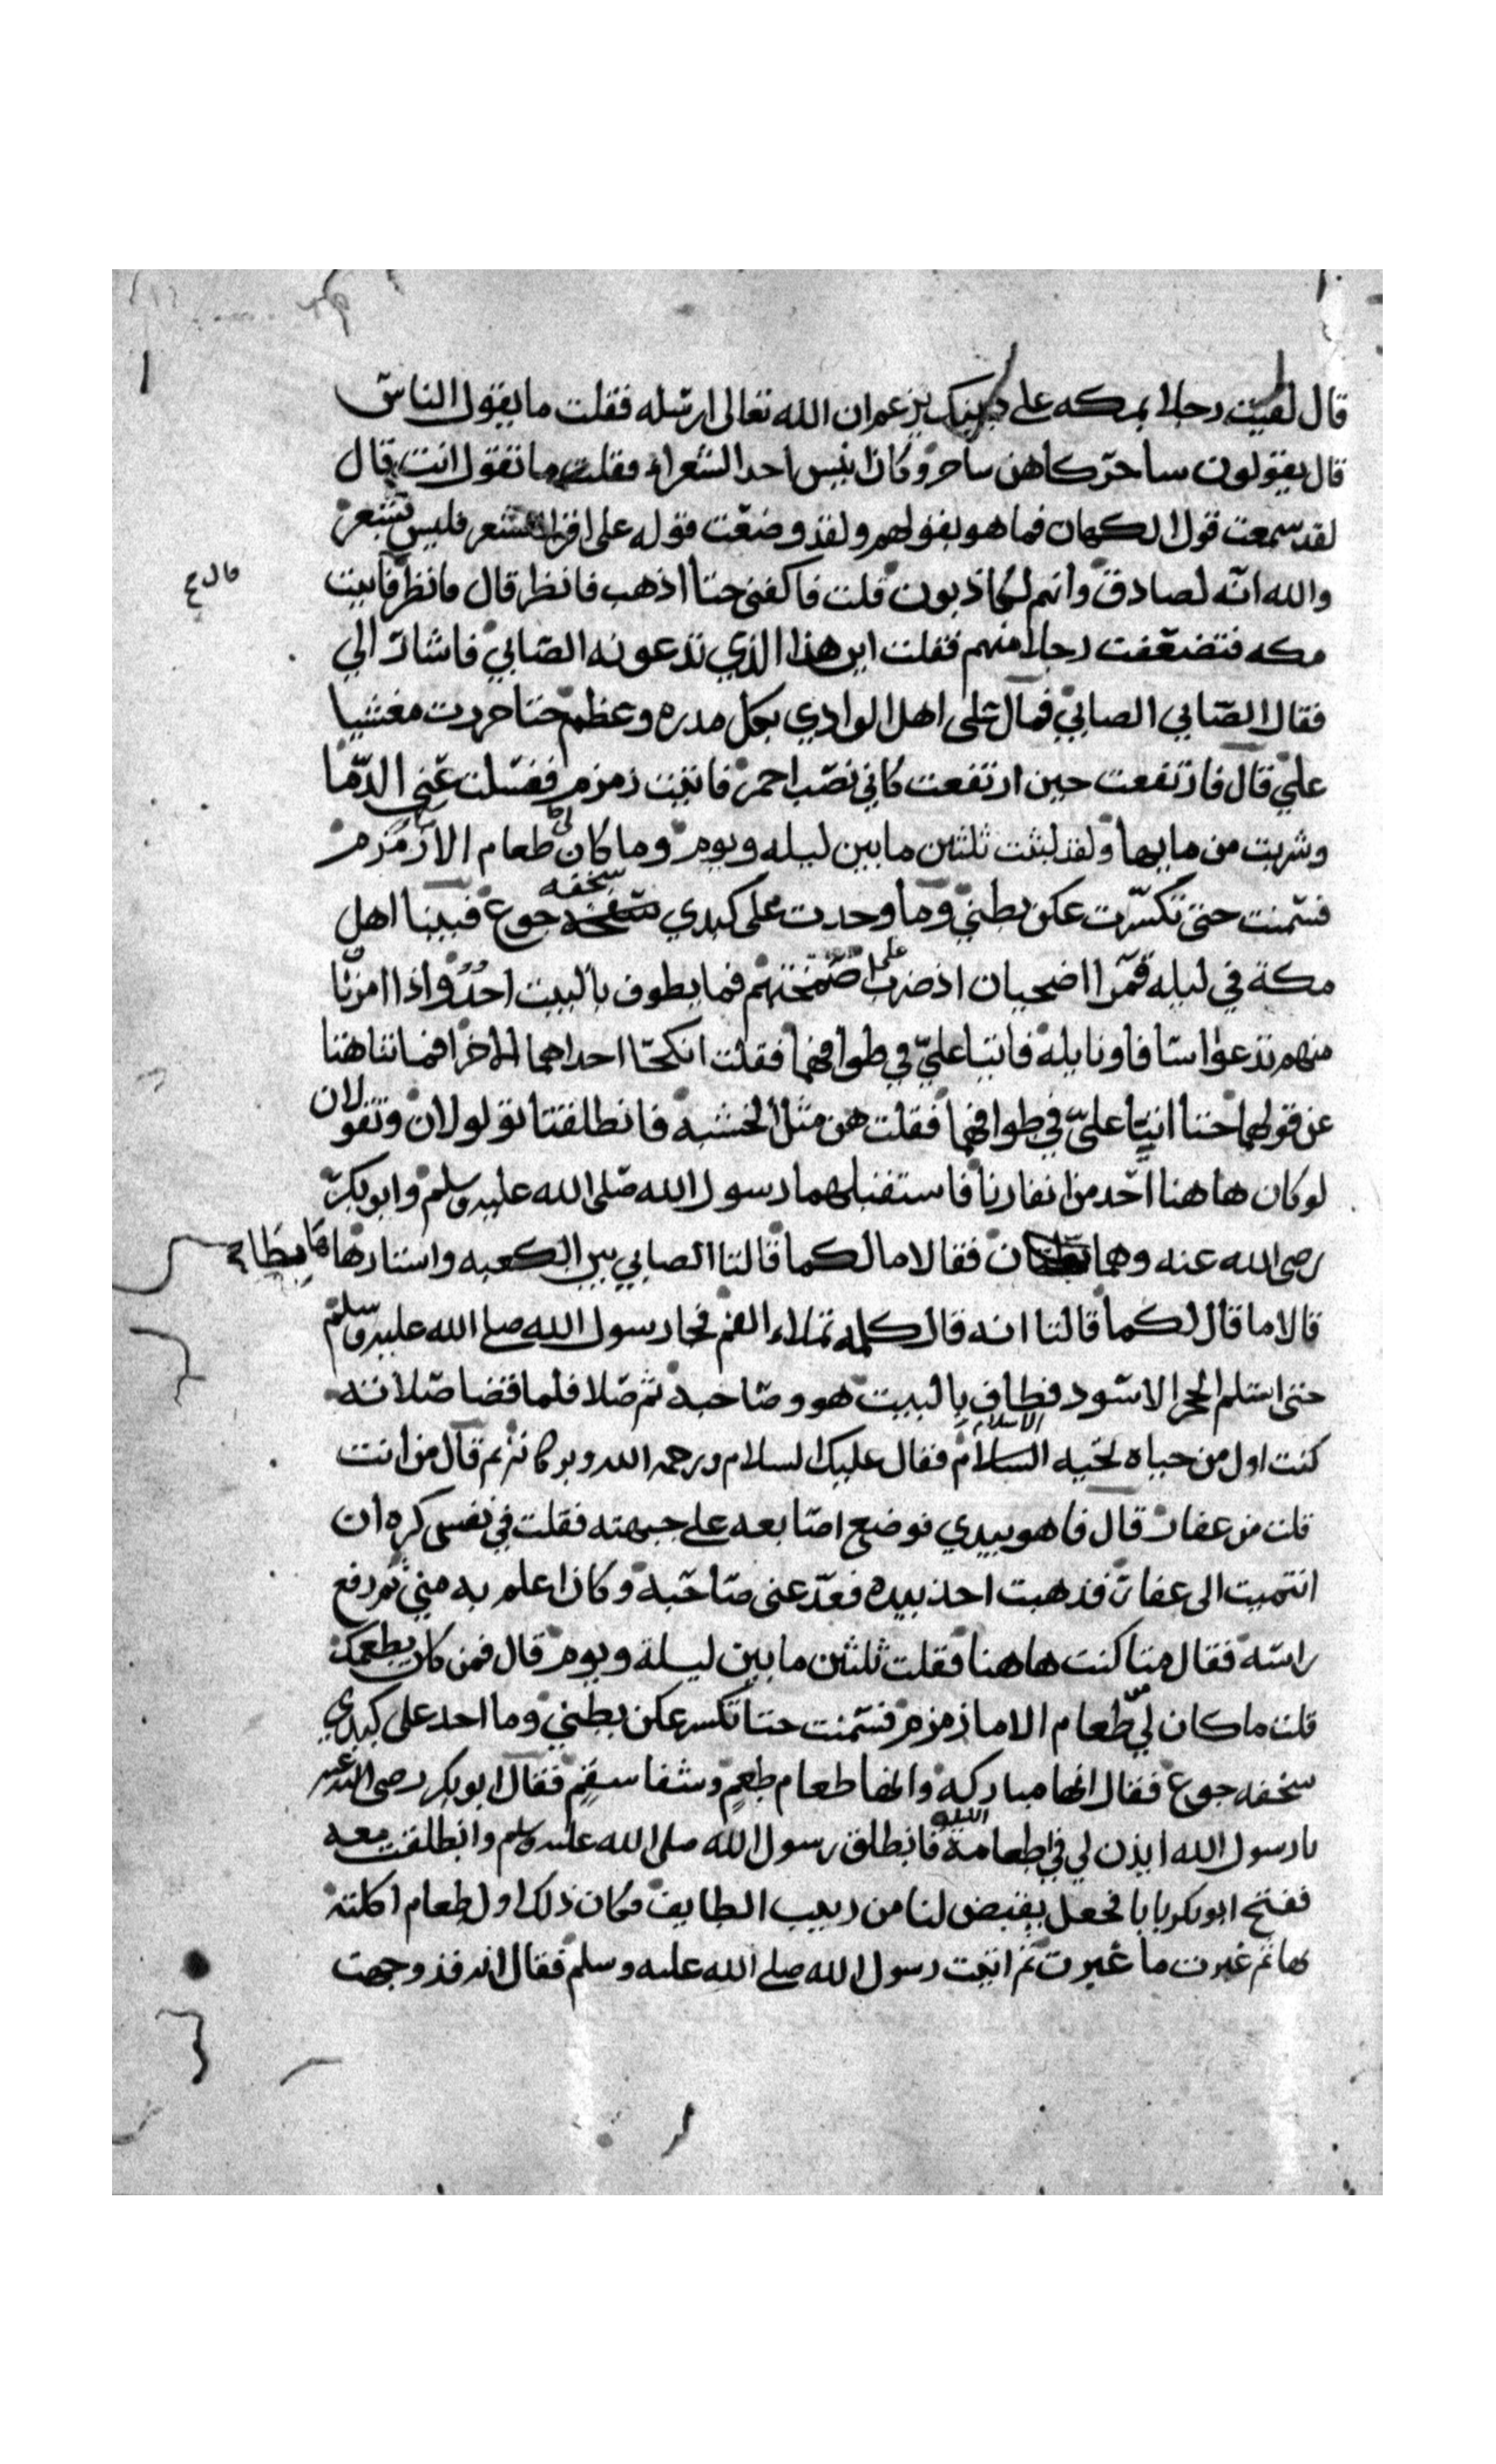 قال لقيت رجلا بمكه على دينك يزعم ان الله تعالى ارسله فقلت ما يقول الناس
قال يقولون ساحر كاهن ساحر وكان انيس احد الشعراء فقلت ما تقول انت قال
لقد سمعت قول الكهان فما هو بقولهم ولقد وضعت قوله على اقرا الشعر فليس بشعر
والله انه لصادق وانهم لكاذبون قلت فاكفني حتا اذهب فانظر قال فانظر فاتيت
مكه فتضعفت رجلا منهم فقلت اين هذا الذي تدعونه الصابي فاشار الي
فقال الصابي الصابي فمال على اهل الوادي بكل مدره وعظم حتا خررت مغشيا
علي قال فارتفعت حين ارتفعت كاني نصب احمر فاتيت زمزم فغسلت عني الدما
وشربت من مايها ولقد لبثت ثلثين ما بين ليله ويوم وما كان لي طعام الا زمزم
فسمنت حتى تكسرت عكن بطني وما وجدت على كبدي سخفه جوع فبينا اهل
مكة في ليله قمرا اضحيان اذ ضرب على اصمختهم فما يطوف بالبيت احد واذا امرتا
منهم تدعوا اسافا ونايلة فاتيا علي في طوافهما فقلت انكحا احداهما الاخرا فما تناهتا
عن قولهما حتا اتيتا علي في طوافهما فقلت هن مثل الخشبه فانطلقتا تولولان وتقولان
لو كان هاهنا احد من انفارنا فاستقبلهما رسول الله صلى الله عليه وسلم وابو بكر
رضي الله عنه وهما هابطان فقالا ما لكما قالتا الصابي بين الكعبه واستارها
قالا ما قال لكما قالتا انه قال كلمه تملاء الفم فجا رسول الله صلى الله عليه وسلم
حتى استلم الحجر الاسود فطاف بالبيت هو وصاحبه ثم صلا فلما قضا صلاته
كنت اول من حياه تحيه الاسلام فقال عليك السلام ورحمه الله وبركاته ثم قال من انت
قلت من غفار قال فاهو بيدي فوضع اصابعه على جبهته فقلت في نفسى كره ان
انتميت الى غفار فذهبت اخذ بيده فقدعني صاحبه وكان اعلم به مني ثم رفع
راسه فقال متا كنت هاهنا فقلت ثلثين ما بين ليلة ويوم قال فمن كان يطعمك
قلت ما كان لي من طعام الا ما زمزم فسمنت حتا تكسر عكن بطني وما اجد على كبدي
سخفه جوع فقال انها مباركه وانها طعام طعم وشفا سقم فقال ابو بكر رضى الله عنه
يا رسول الله ايذن لي في طعامه الليله فانطلق رسول الله صلى الله عليه وسلم وانطلقت معه
ففتح ابو بكر بابا فجعل يقبض لنا من زبيب الطايف فكان ذلك اول طعام اكلته
بها ثم غبرت ما غبرت ثم اتيت رسول الله صلى الله عليه وسلم فقال انه قد وجهت